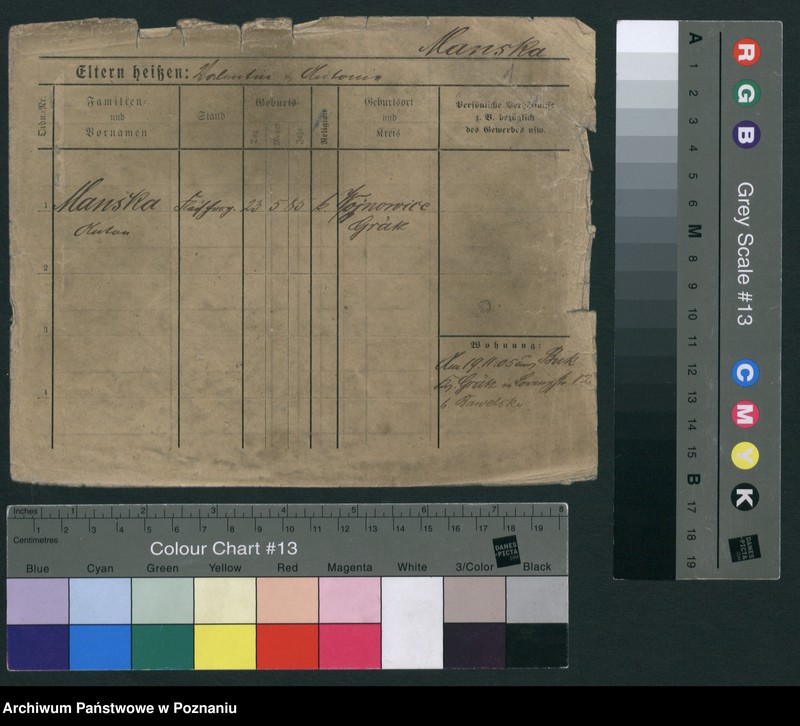 Manska
Eltern heißen: Valentin u Antonie
Lfde. Nr.
Familien-
und
Vornamen
Stand
Geburts-
Tag
Monat
Jahr
Religion
Geburtsort
und
Kreis
Persönliche Verhältnisse
z. B. bezüglich
des Gewerbes usw.
1 Manska 23 5 85 k. Wojnowice
Anton Grätz
2
3
4
Wohnung:
Am 19.11.05 Buk
Grätz
b Kawelski
A 1 2 3 4 5 6 M 8 9 10 11 12 13 14 15 B 17 18 19
R G B
Grey Scale #13
C M Y K
DANES
-PICTA
.COM
Inches 1 2 3 4 5 6 7 8
Centimetres 1 2 3 4 5 6 7 8 9 10 11 12 13 14 15 16 17 18 19
Colour Chart #13
DANES
-PICTA
.COM
Blue Cyan Green Yellow Red Magenta White 3/Color Black
Archiwum Państwowe w Poznaniu